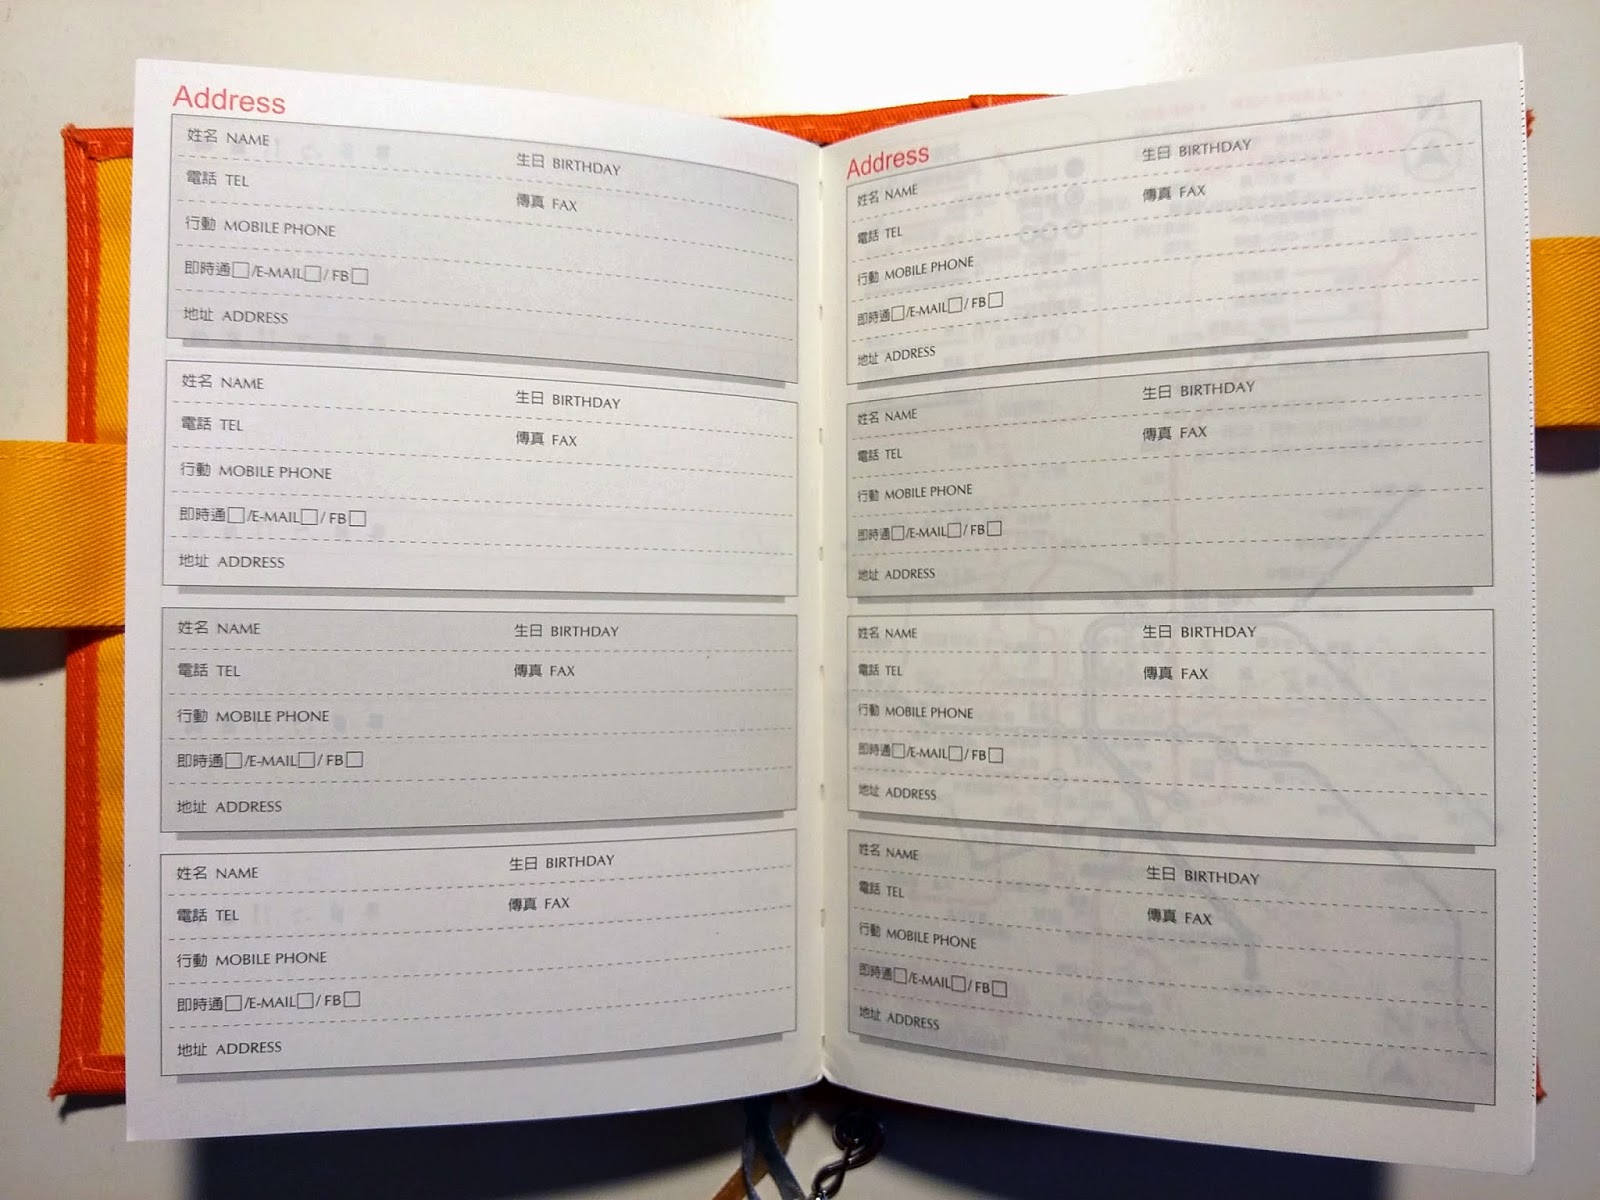 Address
姓名 NAME 生日 BIRTHDAY
電話 TEL 傳真 FAX
行動 MOBILE PHONE
即時通□/E-MAIL□/ FB□
地址 ADDRESS
姓名 NAME 生日 BIRTHDAY
電話 TEL 傳真 FAX
行動 MOBILE PHONE
即時通□/E-MAIL□/ FB□
地址 ADDRESS
姓名 NAME 生日 BIRTHDAY
電話 TEL 傳真 FAX
行動 MOBILE PHONE
即時通□/E-MAIL□/ FB□
地址 ADDRESS
姓名 NAME 生日 BIRTHDAY
電話 TEL 傳真 FAX
行動 MOBILE PHONE
即時通□/E-MAIL□/ FB□
地址 ADDRESS
Address
姓名 NAME 生日 BIRTHDAY
電話 TEL 傳真 FAX
行動 MOBILE PHONE
即時通□/E-MAIL□/ FB□
地址 ADDRESS
姓名 NAME 生日 BIRTHDAY
電話 TEL 傳真 FAX
行動 MOBILE PHONE
即時通□/E-MAIL□/ FB□
地址 ADDRESS
姓名 NAME 生日 BIRTHDAY
電話 TEL 傳真 FAX
行動 MOBILE PHONE
即時通□/E-MAIL□/ FB□
地址 ADDRESS
姓名 NAME 生日 BIRTHDAY
電話 TEL 傳真 FAX
行動 MOBILE PHONE
即時通□/E-MAIL□/ FB□
地址 ADDRESS